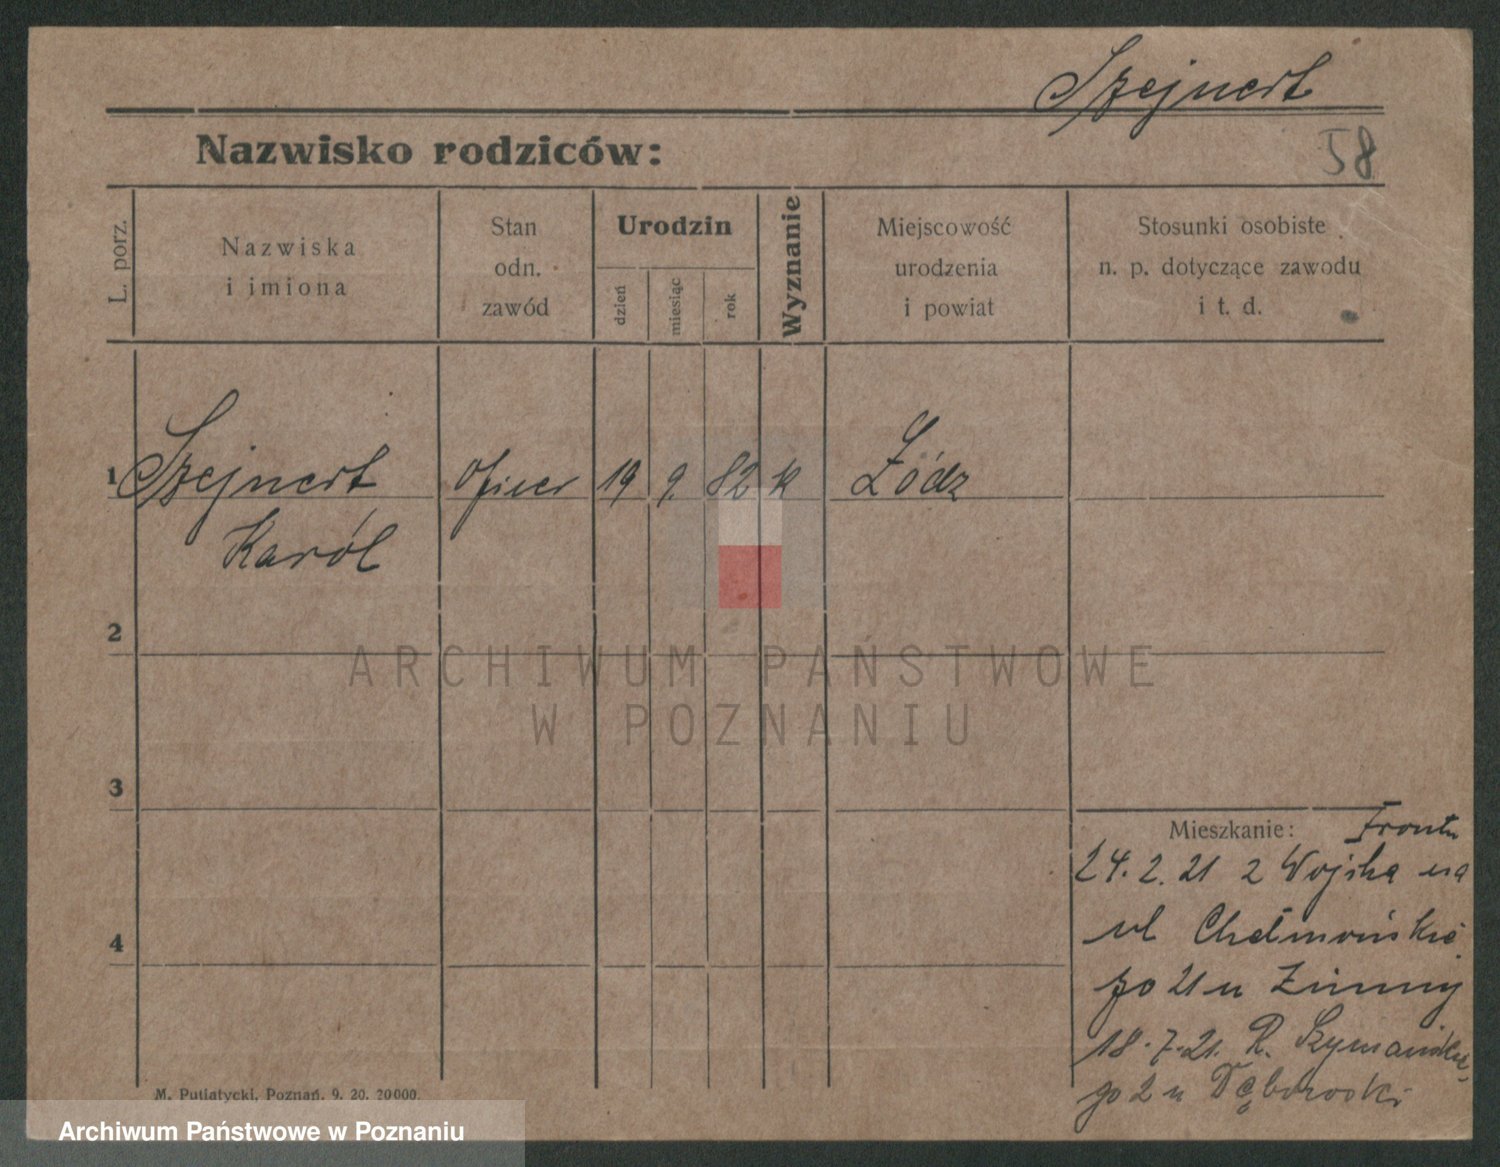 Szejnert
Nazwisko rodziców:
58
L. porz.
Nazwiska
i imiona
Stan
odn.
zawód
Urodzin
dzień
miesiąc
rok
Wyznanie
Miejscowość
urodzenia
i powiat
Stosunki osobiste
n. p. dotyczące zawodu
i t. d.
1 Szejnert oficer 19 9. 82 k Łódz
Karól
2
ARCHIWUM PAŃSTWOWE
W POZNANIU
3
Mieszkanie: Frontu
24. 2. 21 z Wojska na
ul Chełmońskie
go 21 u Zimny
18. 7. 21. R. Szymańskie
go 2 u Dęborowski
4
M. Putiatycki, Poznań. 9. 20. 20000.
Archiwum Państwowe w Poznaniu